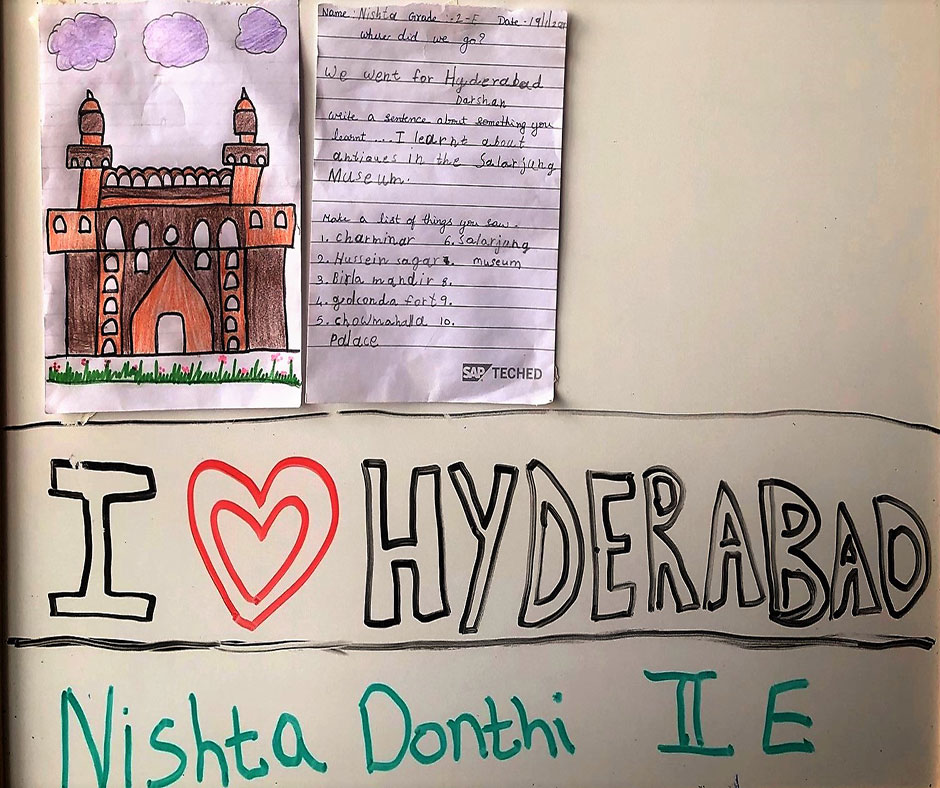 Name: Nishta Grade :-2-E Date-19/1/202
where did we go?
We went for Hyderabad
Darshan
write a sentence about something you
learnt....I learnt about
antiques in the Salarjung
Museum.
Make a list of things you saw.
1. charminar 6. Salarjung
2. Hussein sagar 7. museum
3. Birla mandir 8.
4. golconda fort 9.
5. chowmahalla 10.
Palace
SAP TECHED
I HYDERABAD
Nishta Donthi II E